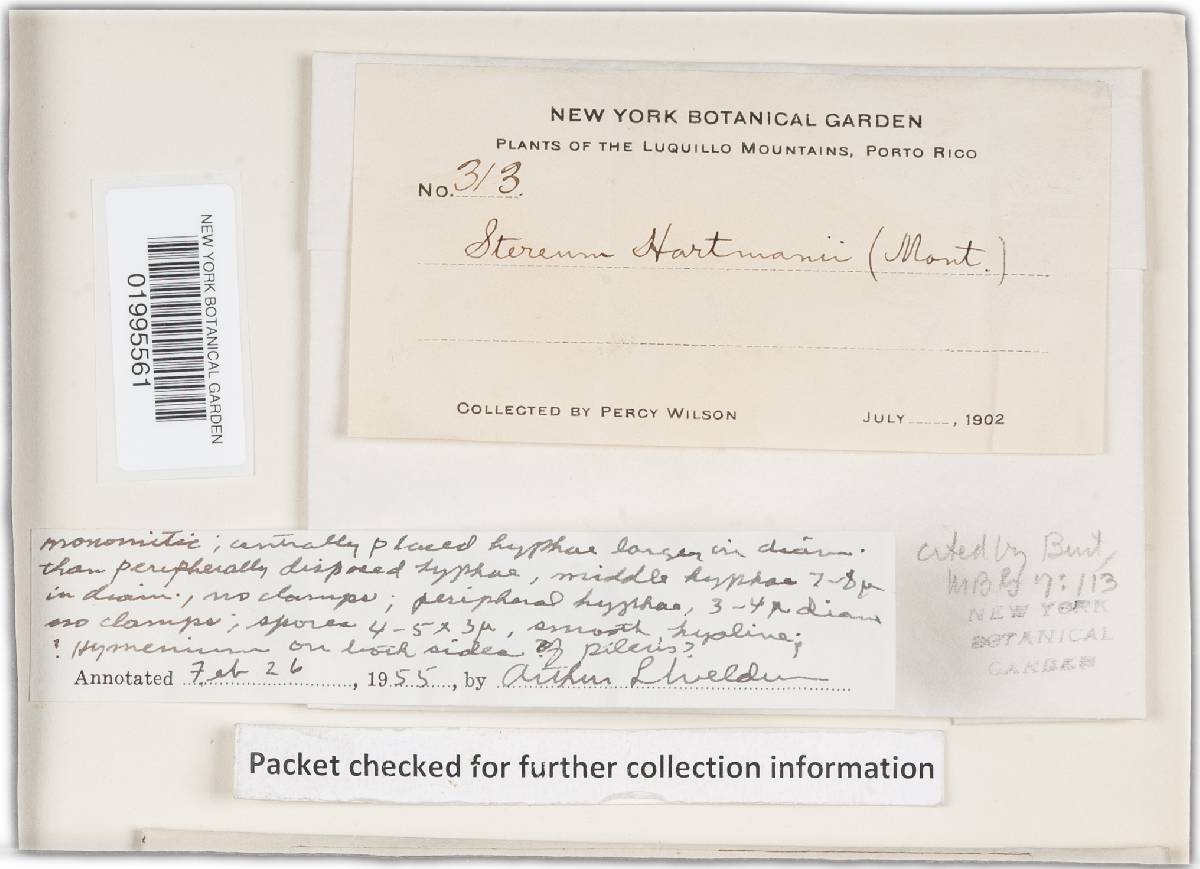 NEW YORK BOTANICAL GARDEN
PLANTS OF THE LUQUILLO MOUNTAINS, PORTO RICO
No. 313.
Stereum Hartmanii (Mont.)
COLLECTED BY PERCY WILSON JULY ____, 1902
NEW YORK BOTANICAL GARDEN
01995561
monomitic; centrally placed hyphae larger in diam.
than peripherally disposed hyphae, middle hyphae 7-8µ
in diam., no clamps; peripheral hyphae, 3-4µ diam
no clamps; spores 4-5 x 3µ, smooth, hyaline;
? Hymenium on both sides of pileus?
Annotated Feb 26, 1955, by Arthur L Welden
cited by Burt,
MBG 7:113
NEW YORK
BOTANICAL
GARDEN
Packet checked for further collection information